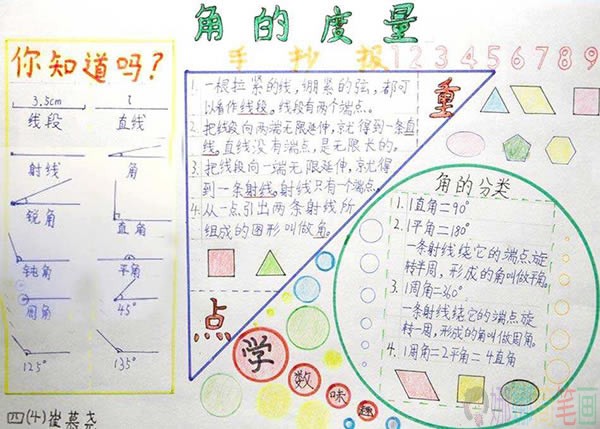 角的度量
手抄报
123456789
你知道吗?
3.5cm
线段
直线
射线
角
锐角
直角
钝角
平角
周角
45°
125°
135°
1. 一根拉紧的线,绷紧的弦,都可
以看作线段。线段有两个端点。
2. 把线段向两端无限延伸,京尤得到一条直
线。直线没有端点,是无限长的。
3. 把线段向一端无限延伸,京尤得
到一条射线。射线只有个端点。
4. 从一点引出两条射线所
组成的图形叫做角。
重
点
角的分类
1. 1直角=90°
2. 1平角=180°
一条射线绕它的端点旋
转半周,形成的角叫做平角。
3. 1周角=360°
一条射线绕它的端点旋
转一周,形成的角叫做周角。
4. 1周角=2平角=4直角
学
数
味
趣
四(4)崔慕尧
笔画